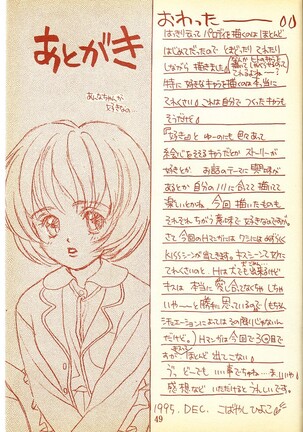 あとがき
あんなちゃんが
好きなの…
おわったーー
はっきり言ってパロディを描くのはほとんど
はじめてだったので とまどったり てれたり
しながら 描きました
特に 好きなキャラを描くのは本当に
てれくさい。これは自分でつくったキャラも
そうだけど。
『好き』とゆーのにも色々あって
絵心をそそるキャラだとか ストーリーが
好きとか、お話のテーマに興味が
あるとか 自分のHに合って 描いて
楽しいとかね。今回描いたものも
それぞれちがう意味で好きなんですが。
さて 今回のHマンガは
KISSシーンが出てきます。キスシーンて
てれくさいの。Hは犬でも出来るけど
キスは本当に愛し合ってなくちゃしちゃ
いやーと勝手に思っているので(もちろん
シチュエーションによってはその限りじゃないん
だけど。)Hマンガは今回で30回目で
すが ほとんど 出てこない
う、どーでも いい事でちゅね…ま、いいや
感想など いただけるとうれしいです。
1995. DEC. こばやしひよこ
49